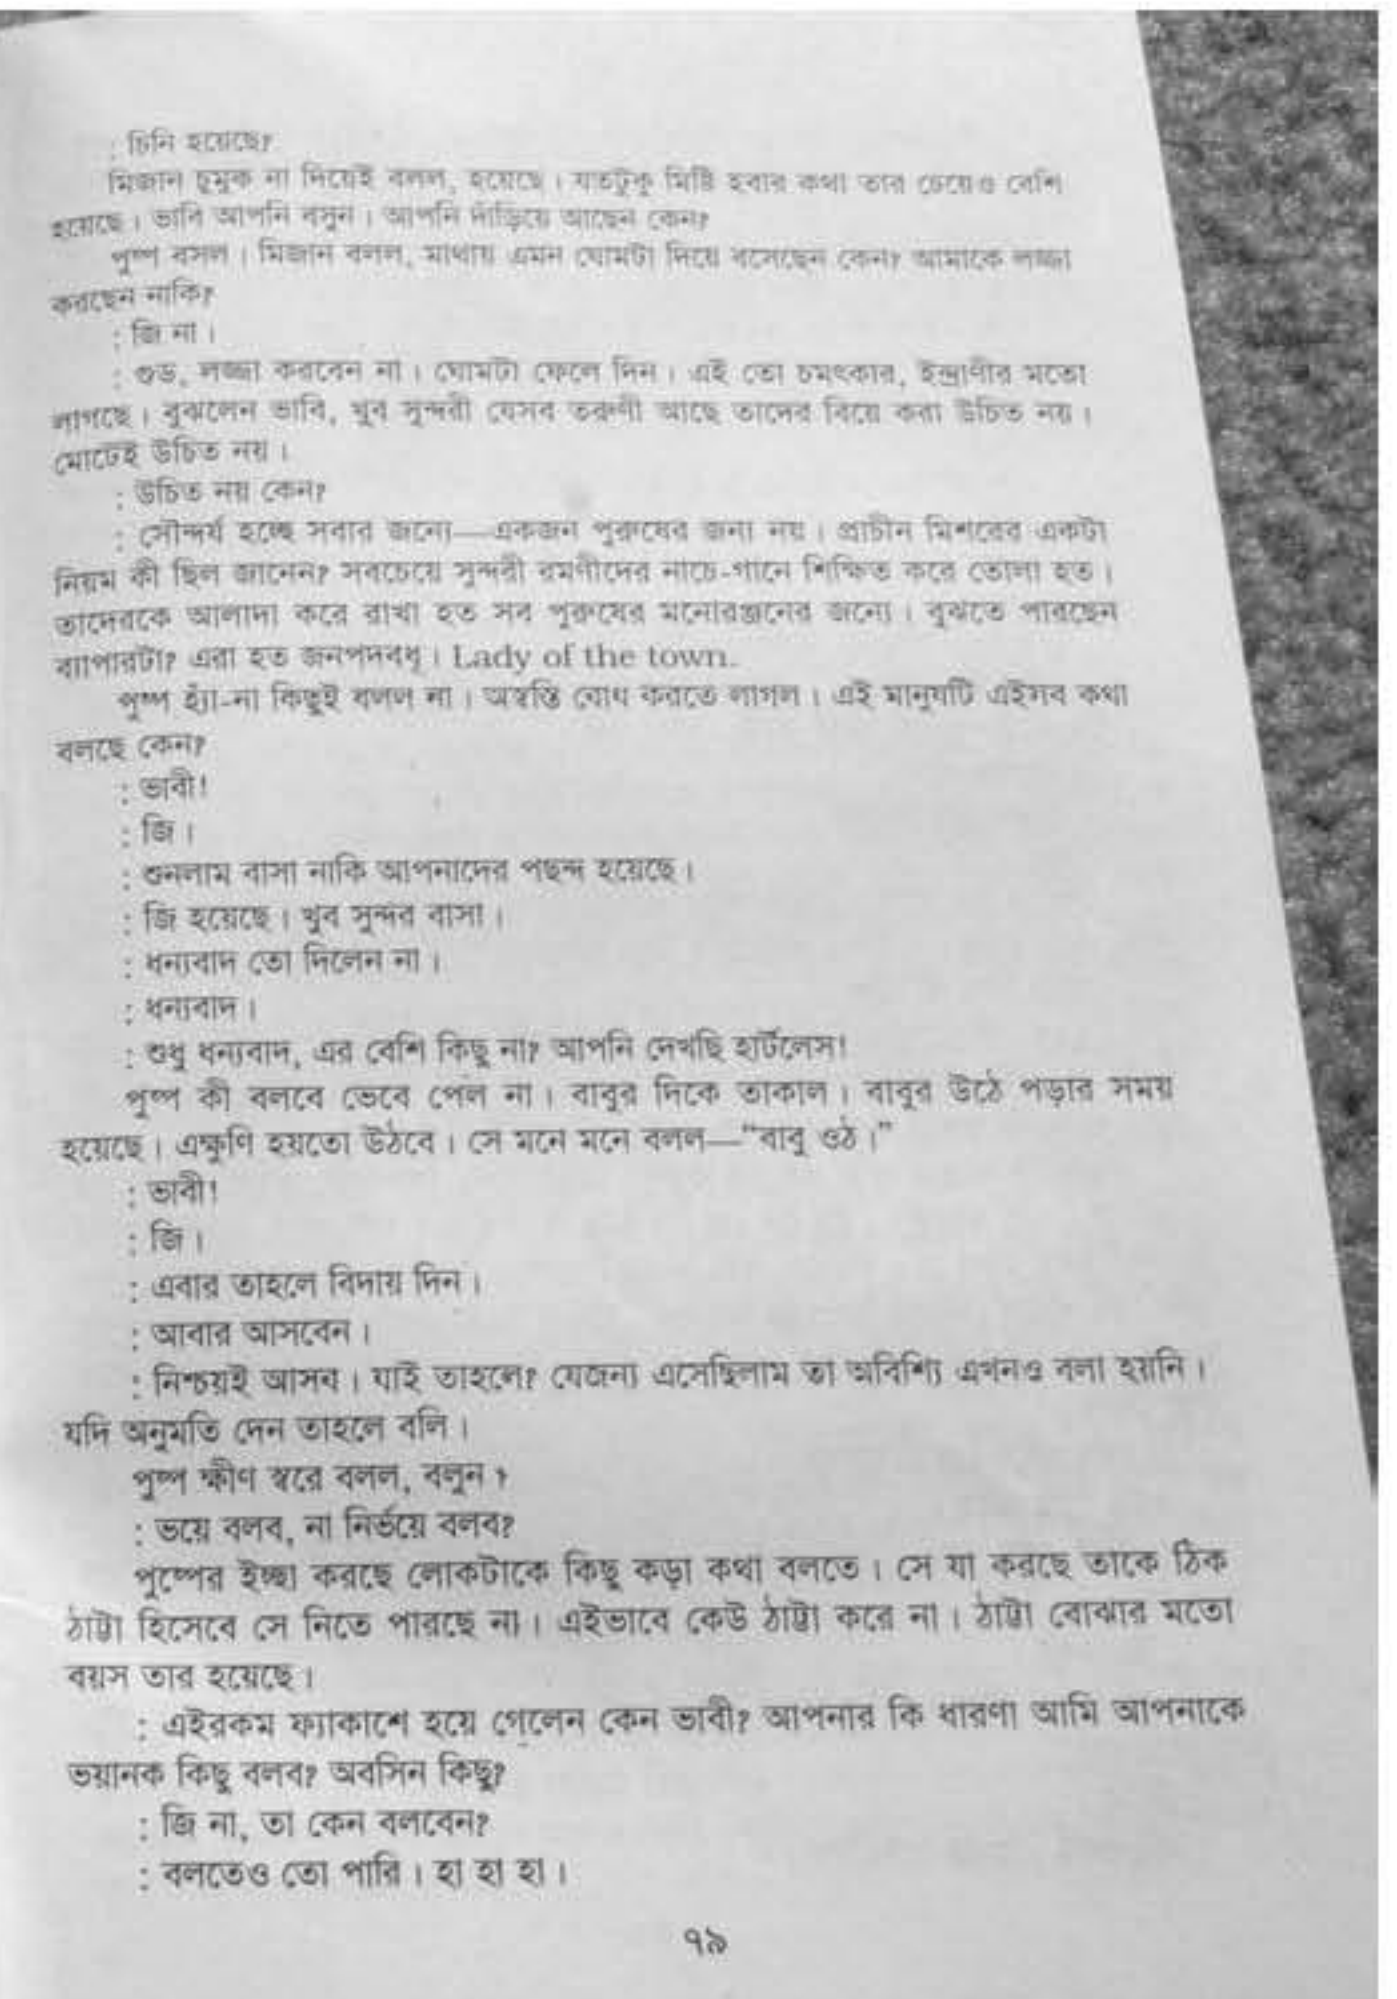 : চিনি হয়েছে?
মিজান চুমুক না দিয়েই বলল, হয়েছে। যতটুকু মিষ্টি হবার কথা তার চেয়েও বেশি
হয়েছে। ভাবি আপনি বসুন। আপনি দাঁড়িয়ে আছেন কেন?
পুষ্প বসল। মিজান বলল, মাথায় এমন ঘোমটা দিয়ে বসেছেন কেন? আমাকে লজ্জা
করছেন নাকি?
: জি না।
: গুড, লজ্জা করবেন না। ঘোমটা ফেলে দিন। এই তো চমৎকার, ইন্দ্রাণীর মতো
লাগছে। বুঝলেন ভাবি, খুব সুন্দরী যেসব তরুণী আছে তাদের বিয়ে করা উচিত নয়।
মোটেই উচিত নয়।
: উচিত নয় কেন?
: সৌন্দর্য হচ্ছে সবার জন্যে—একজন পুরুষের জন্য নয়। প্রাচীন মিশরের একটা
নিয়ম কী ছিল জানেন? সবচেয়ে সুন্দরী রমণীদের নাচে-গানে শিক্ষিত করে তোলা হত।
তাদেরকে আলাদা করে রাখা হত সব পুরুষের মনোরঞ্জনের জন্যে। বুঝতে পারছেন
ব্যাপারটা? এরা হত জনপদবধূ। Lady of the town.
পুষ্প হ্যাঁ-না কিছুই বলল না। অস্বস্তি বোধ করতে লাগল। এই মানুষটি এইসব কথা
বলছে কেন?
: ভাবী!
: জি।
: শুনলাম বাসা নাকি আপনাদের পছন্দ হয়েছে।
: জি হয়েছে। খুব সুন্দর বাসা।
: ধন্যবাদ তো দিলেন না।
: ধন্যবাদ।
: শুধু ধন্যবাদ, এর বেশি কিছু না? আপনি দেখছি হার্টলেস!
পুষ্প কী বলবে ভেবে পেল না। বাবুর দিকে তাকাল। বাবুর উঠে পড়ার সময়
হয়েছে। এক্ষুণি হয়তো উঠবে। সে মনে মনে বলল—“বাবু ওঠ।”
: ভাবী!
: জি।
: এবার তাহলে বিদায় দিন।
: আবার আসবেন।
: নিশ্চয়ই আসব। যাই তাহলে? যেজন্য এসেছিলাম তা অবিশ্যি এখনও বলা হয়নি।
যদি অনুমতি দেন তাহলে বলি।
পুষ্প ক্ষীণ স্বরে বলল, বলুন।
: ভয়ে বলব, না নির্ভয়ে বলব?
পুষ্পের ইচ্ছা করছে লোকটাকে কিছু কড়া কথা বলতে। সে যা করছে তাকে ঠিক
ঠাট্টা হিসেবে সে নিতে পারছে না। এইভাবে কেউ ঠাট্টা করে না। ঠাট্টা বোঝার মতো
বয়স তার হয়েছে।
: এইরকম ফ্যাকাশে হয়ে গেলেন কেন ভাবী? আপনার কি ধারণা আমি আপনাকে
ভয়ানক কিছু বলব? অবসিন কিছু?
: জি না, তা কেন বলবেন?
: বলতেও তো পারি। হা হা হা।
৭৯